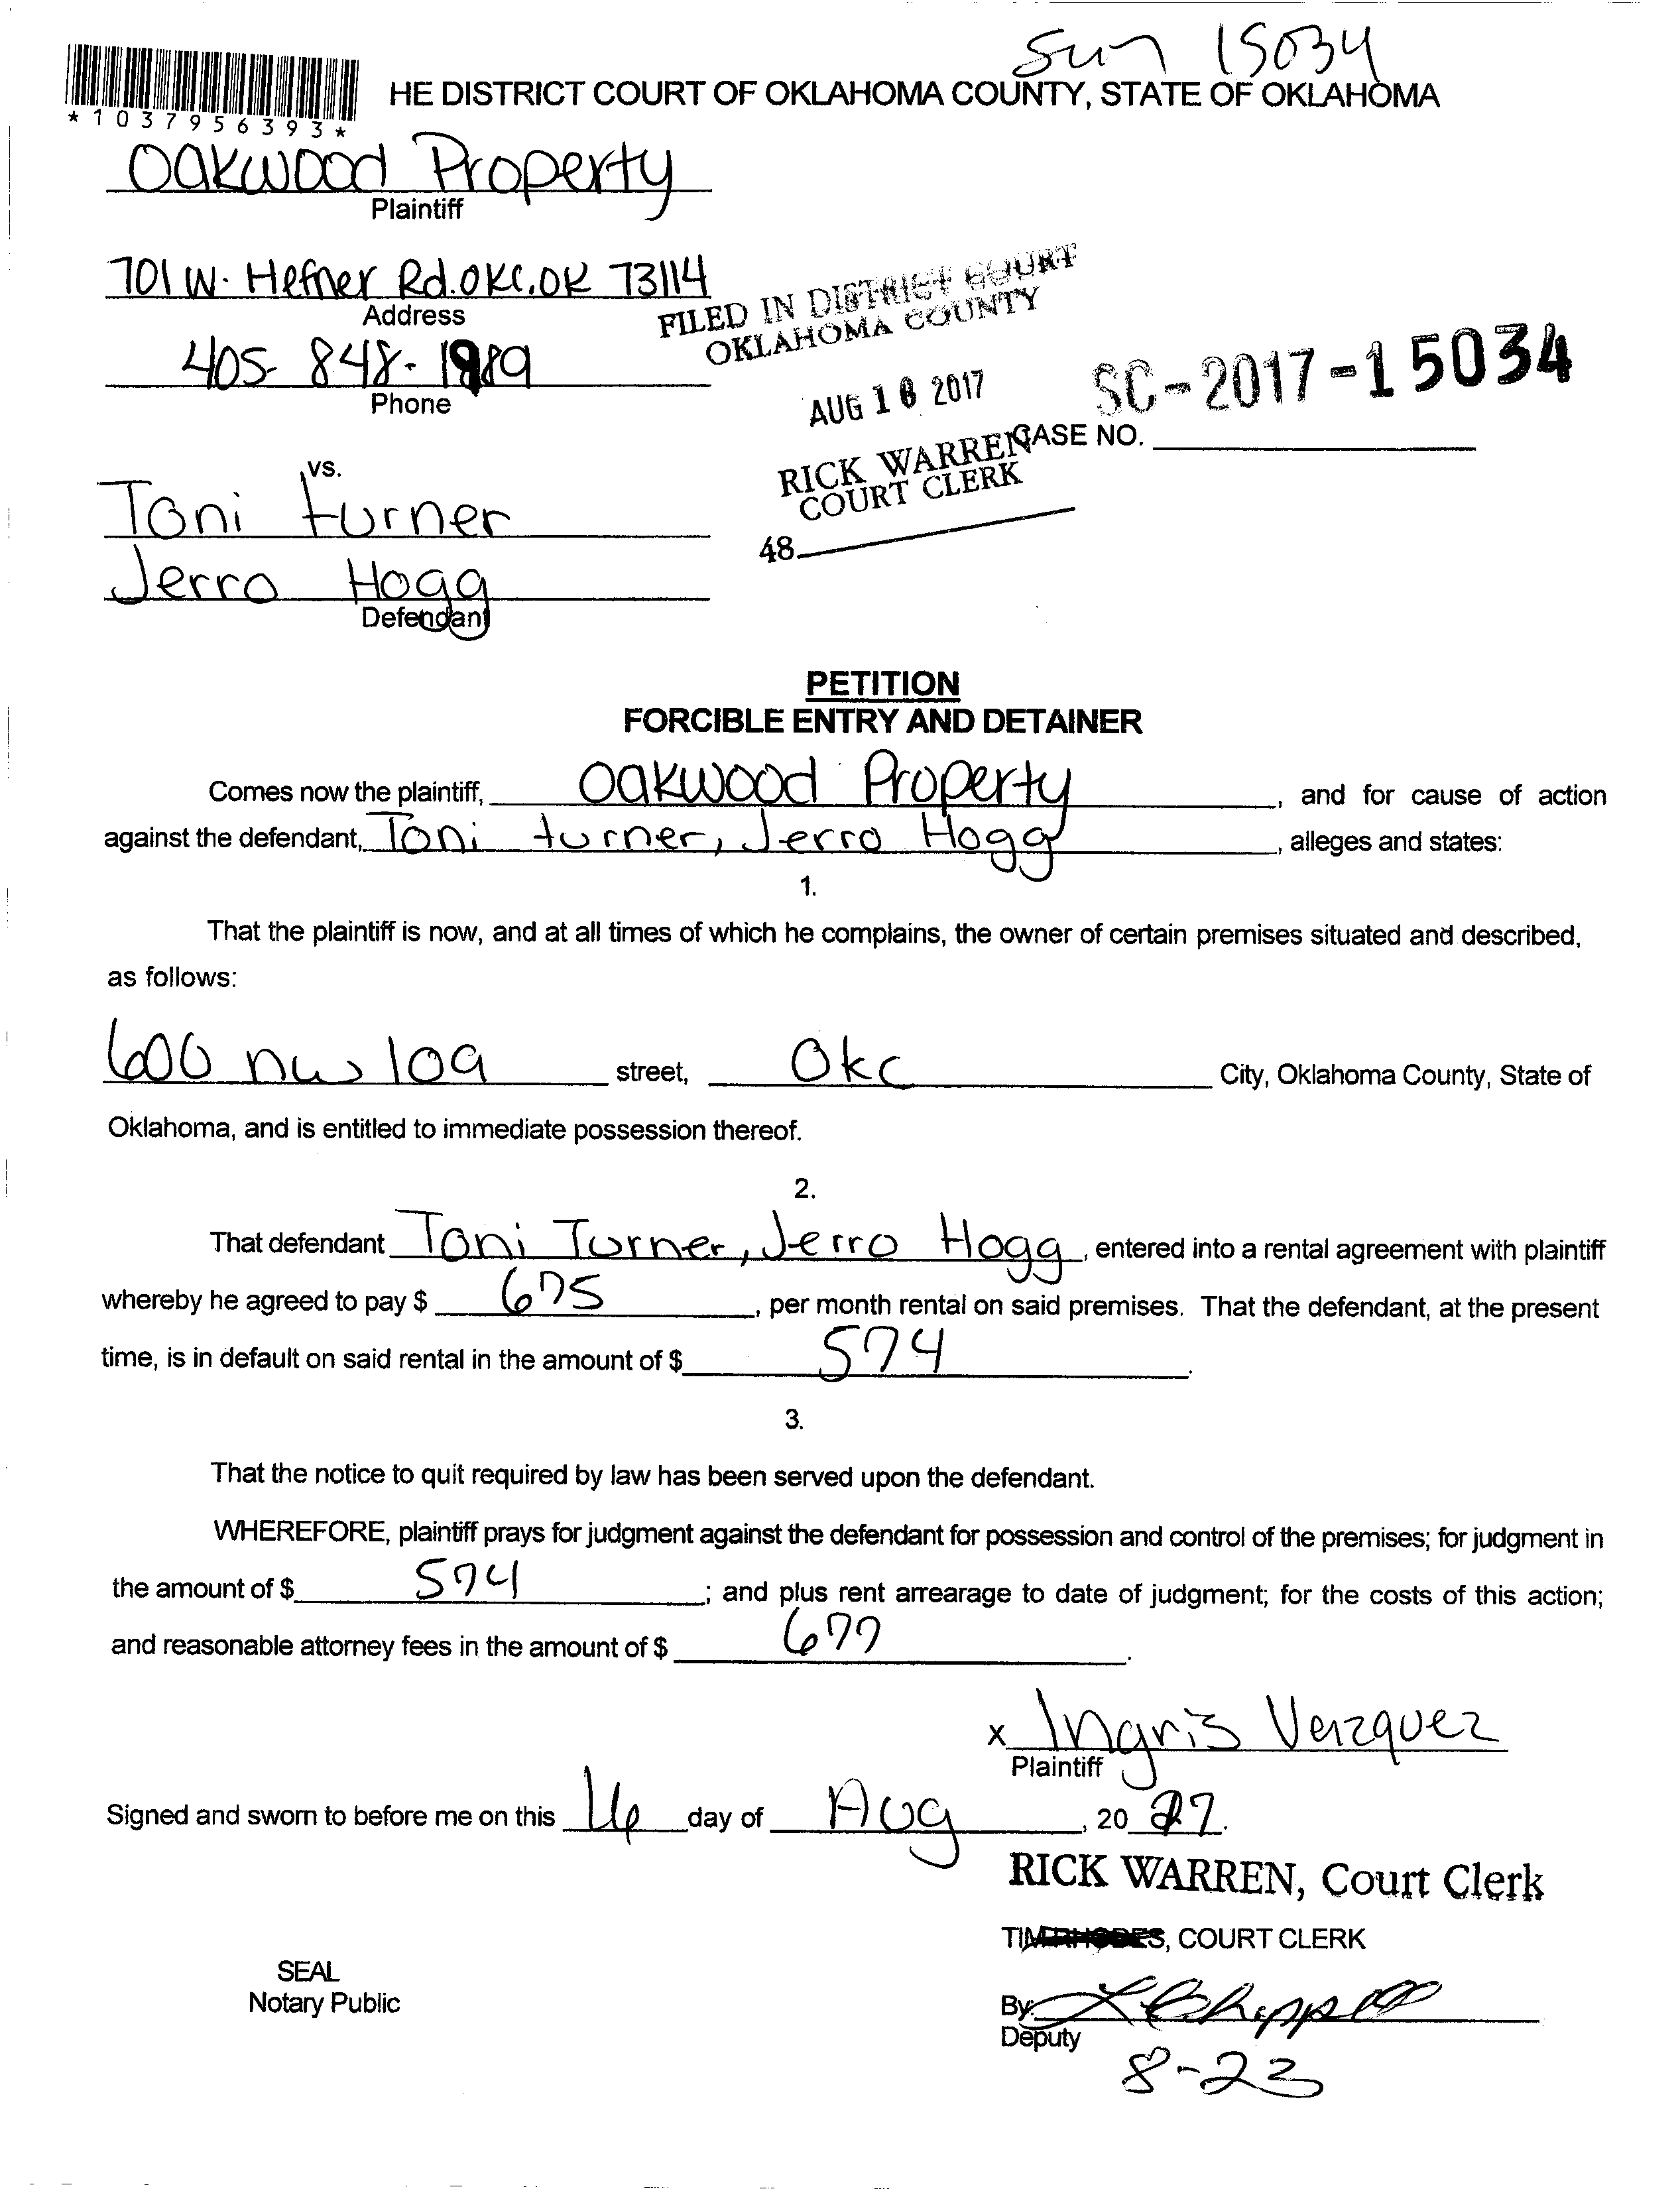 Sum 15034
HE DISTRICT COURT OF OKLAHOMA COUNTY, STATE OF OKLAHOMA
*1037956393*
Oakwood Property
Plaintiff
701 W. Hefner Rd. OKC, OK 73114
Address
405-848-1989
Phone
FILED IN DISTRICT COURT
OKLAHOMA COUNTY
AUG 16 2017
SC-2017-15034
CASE NO.
RICK WARREN
COURT CLERK
48
vs.
Toni turner
Jerro Hogg
Defendant
PETITION
FORCIBLE ENTRY AND DETAINER
Comes now the plaintiff, Oakwood Property, and for cause of action
against the defendant, Toni turner, Jerro Hogg, alleges and states:
1.
That the plaintiff is now, and at all times of which he complains, the owner of certain premises situated and described,
as follows:
600 nw 109 street, Okc City, Oklahoma County, State of
Oklahoma, and is entitled to immediate possession thereof.
2.
That defendant Toni Turner, Jerro Hogg, entered into a rental agreement with plaintiff
whereby he agreed to pay $ 675, per month rental on said premises. That the defendant, at the present
time, is in default on said rental in the amount of $ 574.
3.
That the notice to quit required by law has been served upon the defendant.
WHEREFORE, plaintiff prays for judgment against the defendant for possession and control of the premises; for judgment in
the amount of $ 574; and plus rent arrearage to date of judgment; for the costs of this action;
and reasonable attorney fees in the amount of $ 677.
x Ingris Vazquez
Plaintiff
Signed and sworn to before me on this 16 day of Aug, 20 17.
RICK WARREN, Court Clerk
TIM RHODES, COURT CLERK
SEAL
Notary Public
By:
Deputy
8-23